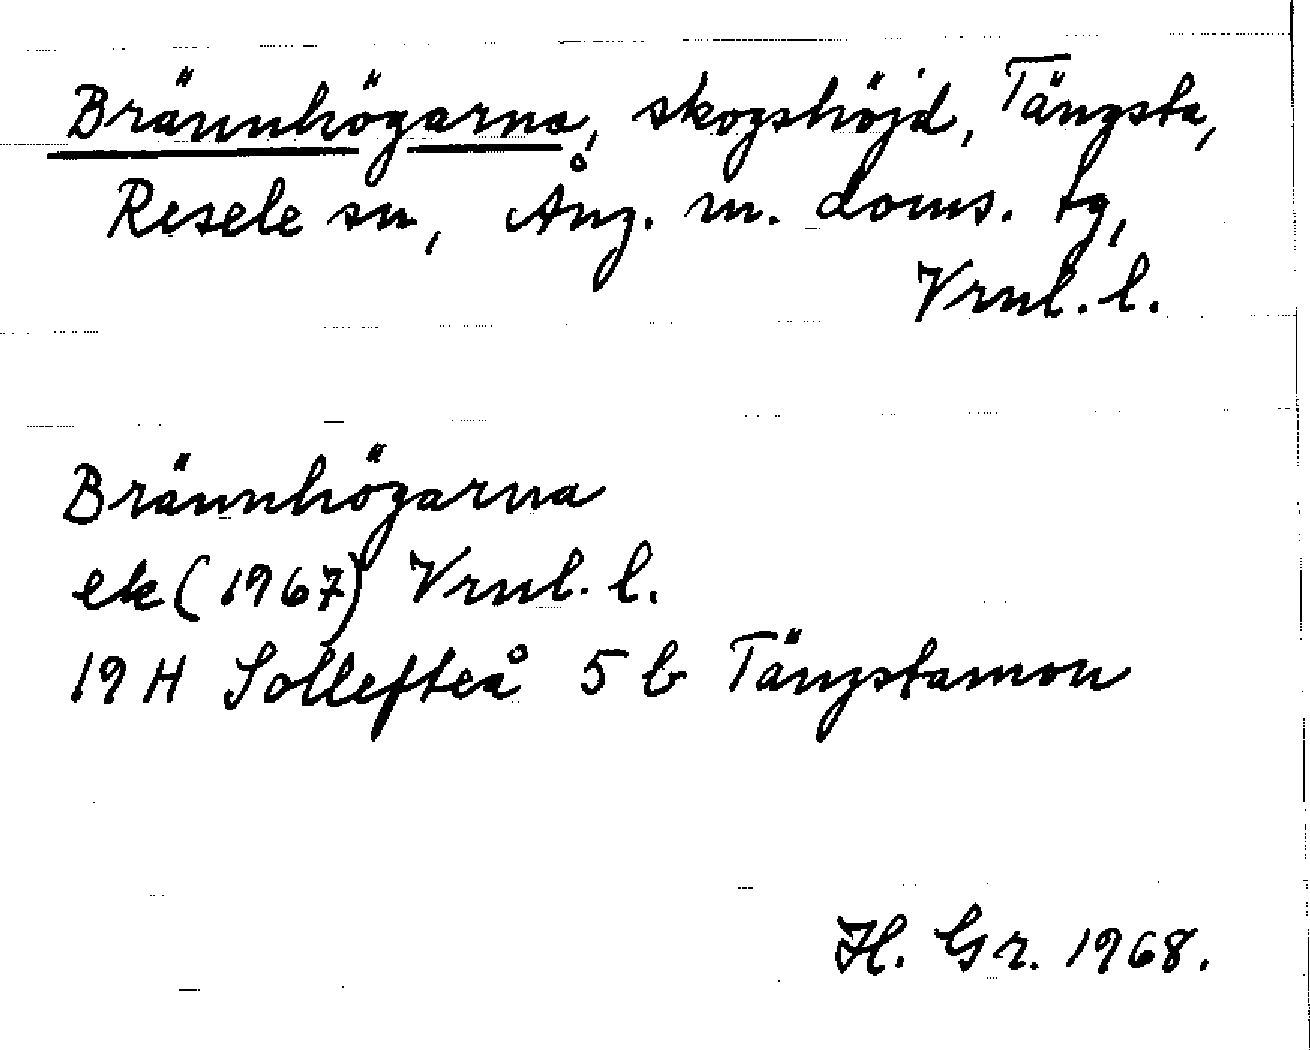 Brännhögarna, skogshöjd, Tängsta,
Resele sn, Ång. m. doms. tg,
Vrnl. l.
Brännhögarna
ek (1967) Vrnl. l.
19 H Sollefteå 5 b Tängstamon
H. Gr. 1968.